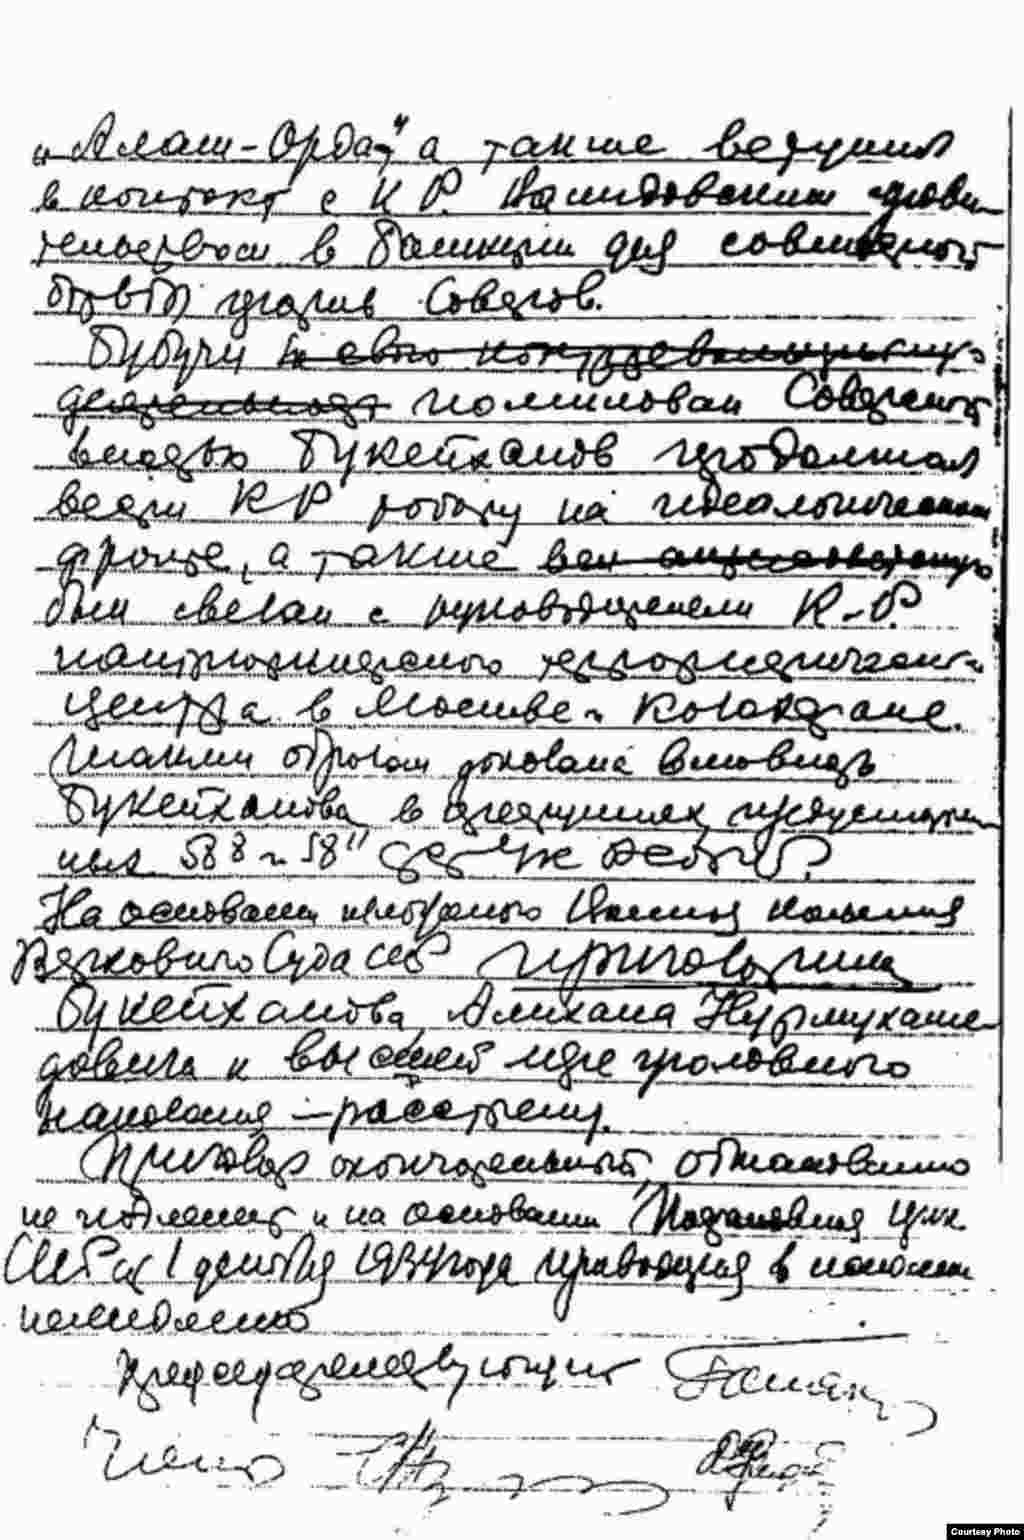 „Алаш-Орда“, а также вступил
в контакт с К.Р. Валидовским прави-
тельством в Башкирии для совместной
борьбы против Советов.
Будучи за свою контрреволюционную
деятельность помилован Советской
властью Букейханов продолжал
вести КР работу на идеологическом
фронте, а также
был связан с руководителем К-Р.
террористического
центра в Москве
Таким образом доказана виновность
Букейханова в преступлениях, предусмотрен-
ных 58⁸ и 58¹¹ УК РСФСР.
На основании изложенного Военная коллегия
Верховного Суда СССР приговорила
Букейханова Алихана Нурмухаме-
довича к высшей мере уголовного
наказания – расстрелу.
Приговор окончательный, обжалованию
не подлежит и на основании Постановления ЦИК
СССР от 1 декабря 1934 года приводится в исполнение
немедленно
Председательствующий
Члены
Courtesy Photo